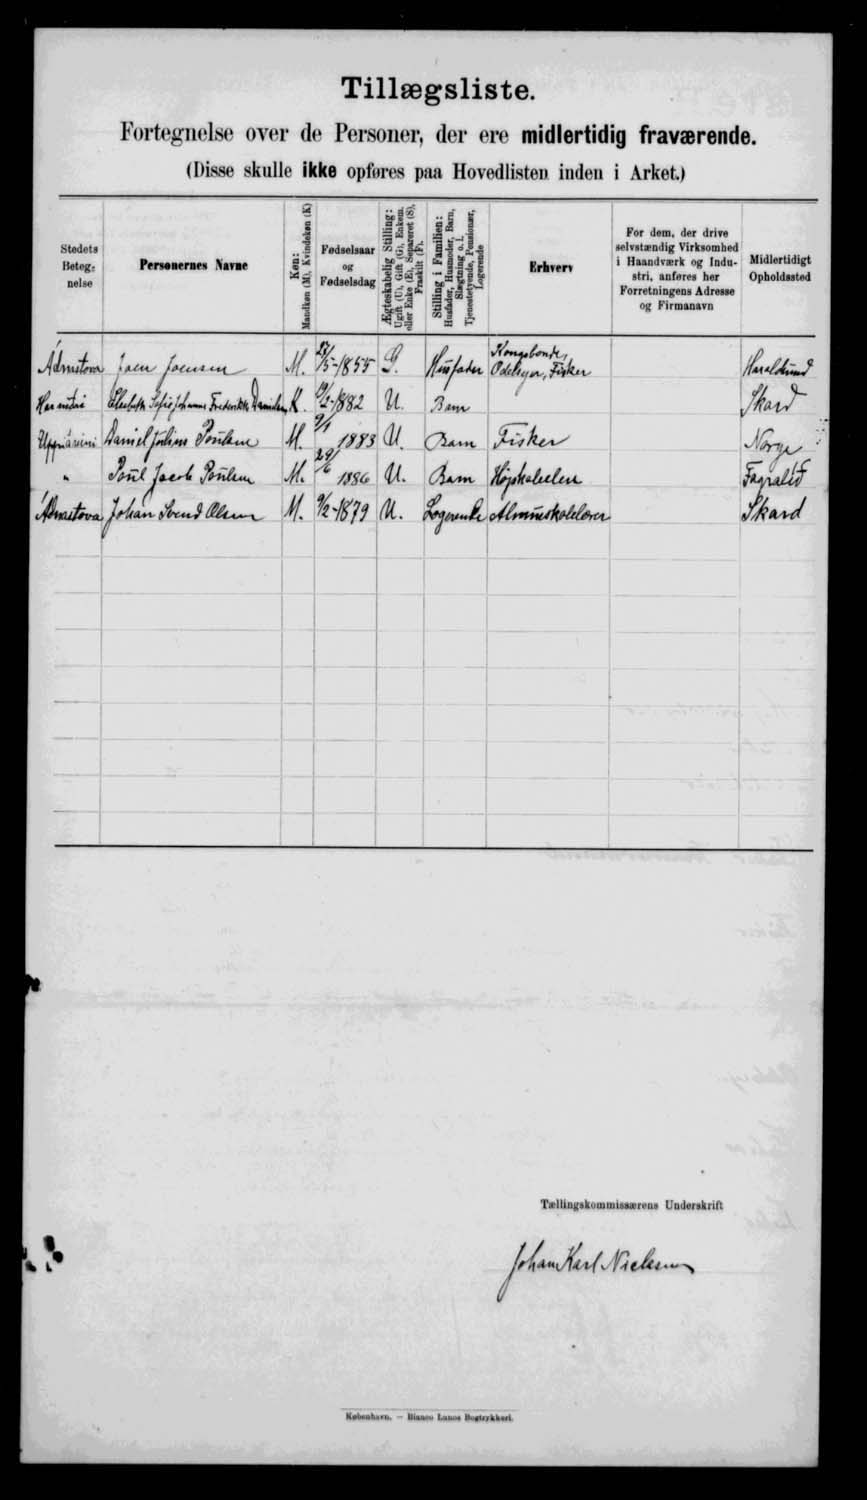 Tillægsliste.
Fortegnelse over de Personer, der ere midlertidig fraværende.
(Disse skulle ikke opføres paa Hovedlisten inden i Arket.)
Stedets Beteg- nelse
Personernes Navne
Køn: Mandkøn (M), Kvindekøn (K)
Fødselsaar og Fødselsdag
Ægteskabelig Stilling: Ugift (U), Gift (G), Enkem. eller Enke (E), Separeret (S), Fraskilt (F).
Stilling i Familien: Husfader, Husmoder, Barn, Slægtning o. l. Tjenestetyende, Pensionær, Logerende
Erhverv
For dem, der drive selvstændig Virksomhed i Haandværk og Indu- stri, anføres her Forretningens Adresse og Firmanavn
Midlertidigt Opholdssted
Ádmstova Joen Joensen M. 27/5-1855 G. Husfader Kongsbonde, Odelsejer, Fisker Haraldsund
Elsebeth Sofie Johanne Frederikke Danielsen K. /2-1882 U. Barn Skard
Daniel Julius Poulsen M. 9/1 1883 U. Barn Fisker Norge
" Poul Jacob Poulsen M. 29/6 1886 U. Barn Højskoleelev Fagralid
Johan Svend Olsen M. 9/2-1879 U. Logerende Almueskolelærer Skard
Tællingskommissærens Underskrift
Johan Karl Nielsen
København. — Bianco Lunos Bogtrykkeri.